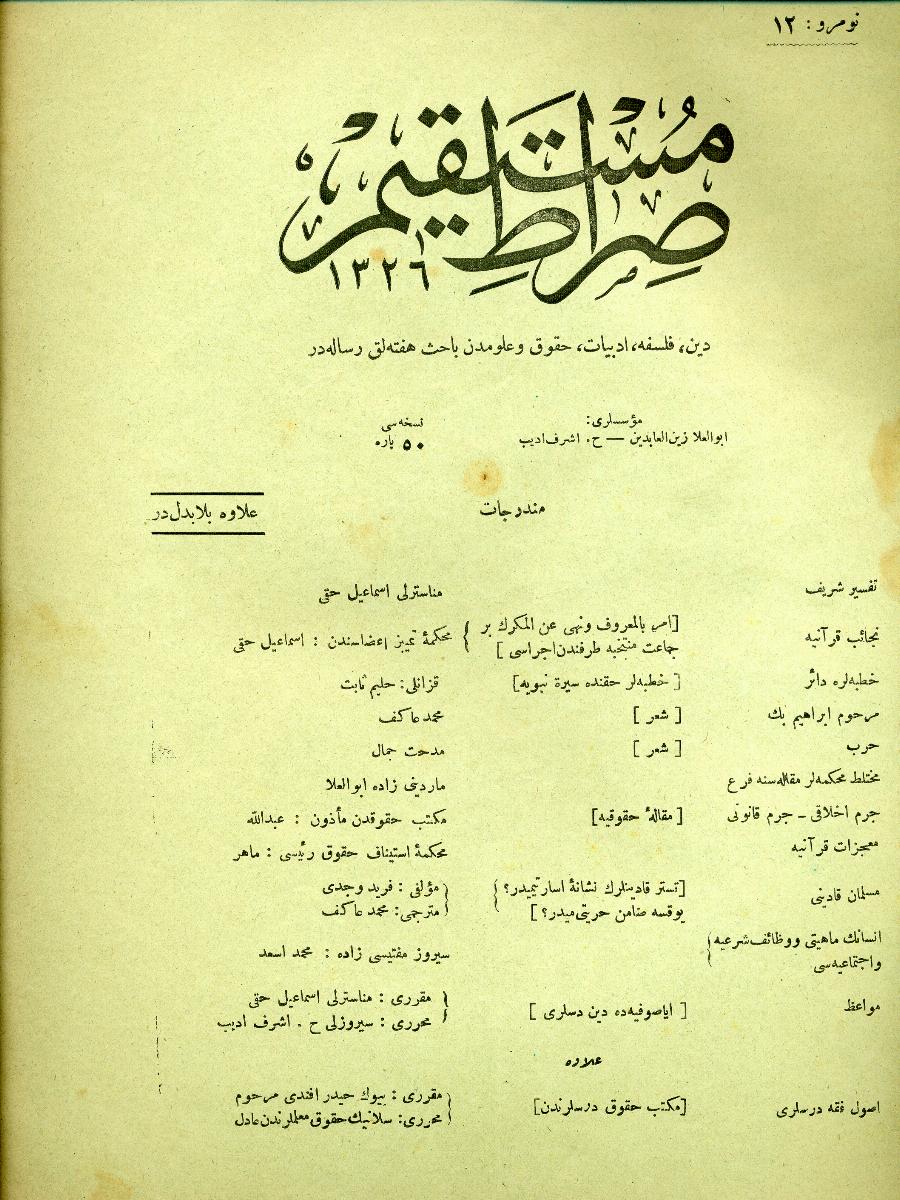 نومرو : ١٢
صراط مستقيم
١٣٢٦
دين، فلسفه، ادبيات، حقوق وعلومدن باحث هفته‌لق رساله‌در
مؤسسلری:
ابوالعلا زين‌العابدين — ح. اشرف اديب
نسخه‌سی
٥٠ پاره
مندرجات
علاوه بلابدل‌در
تفسير شريف مناسترلی اسماعيل حقی
نجائب قرآنيه [امر بالمعروف ونهی عن المنكرك بر
جماعت منتخبه طرفندن اجراسی] } محكمهٔ تميز اعضاسندن : اسماعيل حقی
خطبه‌لره دائر [خطبه‌لر حقنده سيرة نبويه] قزانلی: حليم ثابت
مرحوم ابراهيم بك [شعر] محمد عاكف
حرب [شعر] مدحت جمال
مختلط محكمه‌لر مقاله‌سنه فرع ماردينی زاده ابوالعلا
جرم اخلاقی ـ جرم قانونی [مقالهٔ حقوقيه] مكتب حقوقدن مأذون : عبدالله
معجزات قرآنيه محكمهٔ استيناف حقوق رئيسی : ماهر
مسلمان قادينی [تستر قادينلرك نشانهٔ اسارتيميدر؟
يوقسه ضامن حريتی‌ميدر؟] } مؤلفی : فريد وجدی
مترجمی: محمد عاكف
انسانك ماهيتی ووظائف شرعيه
واجتماعيه‌سی } سيروز مفتيسی زاده : محمد اسعد
مواعظ [اياصوفيه‌ده دين دسلری] } مقرری : مناسترلی اسماعيل حقی
محرری : سيروزلی ح . اشرف اديب
علاوه
اصول فقه درسلری [مكتب حقوق درسلرندن] } مقرری : بيوك حيدر افندی مرحوم
محرری: سلانيك حقوق معلملرندن عادل